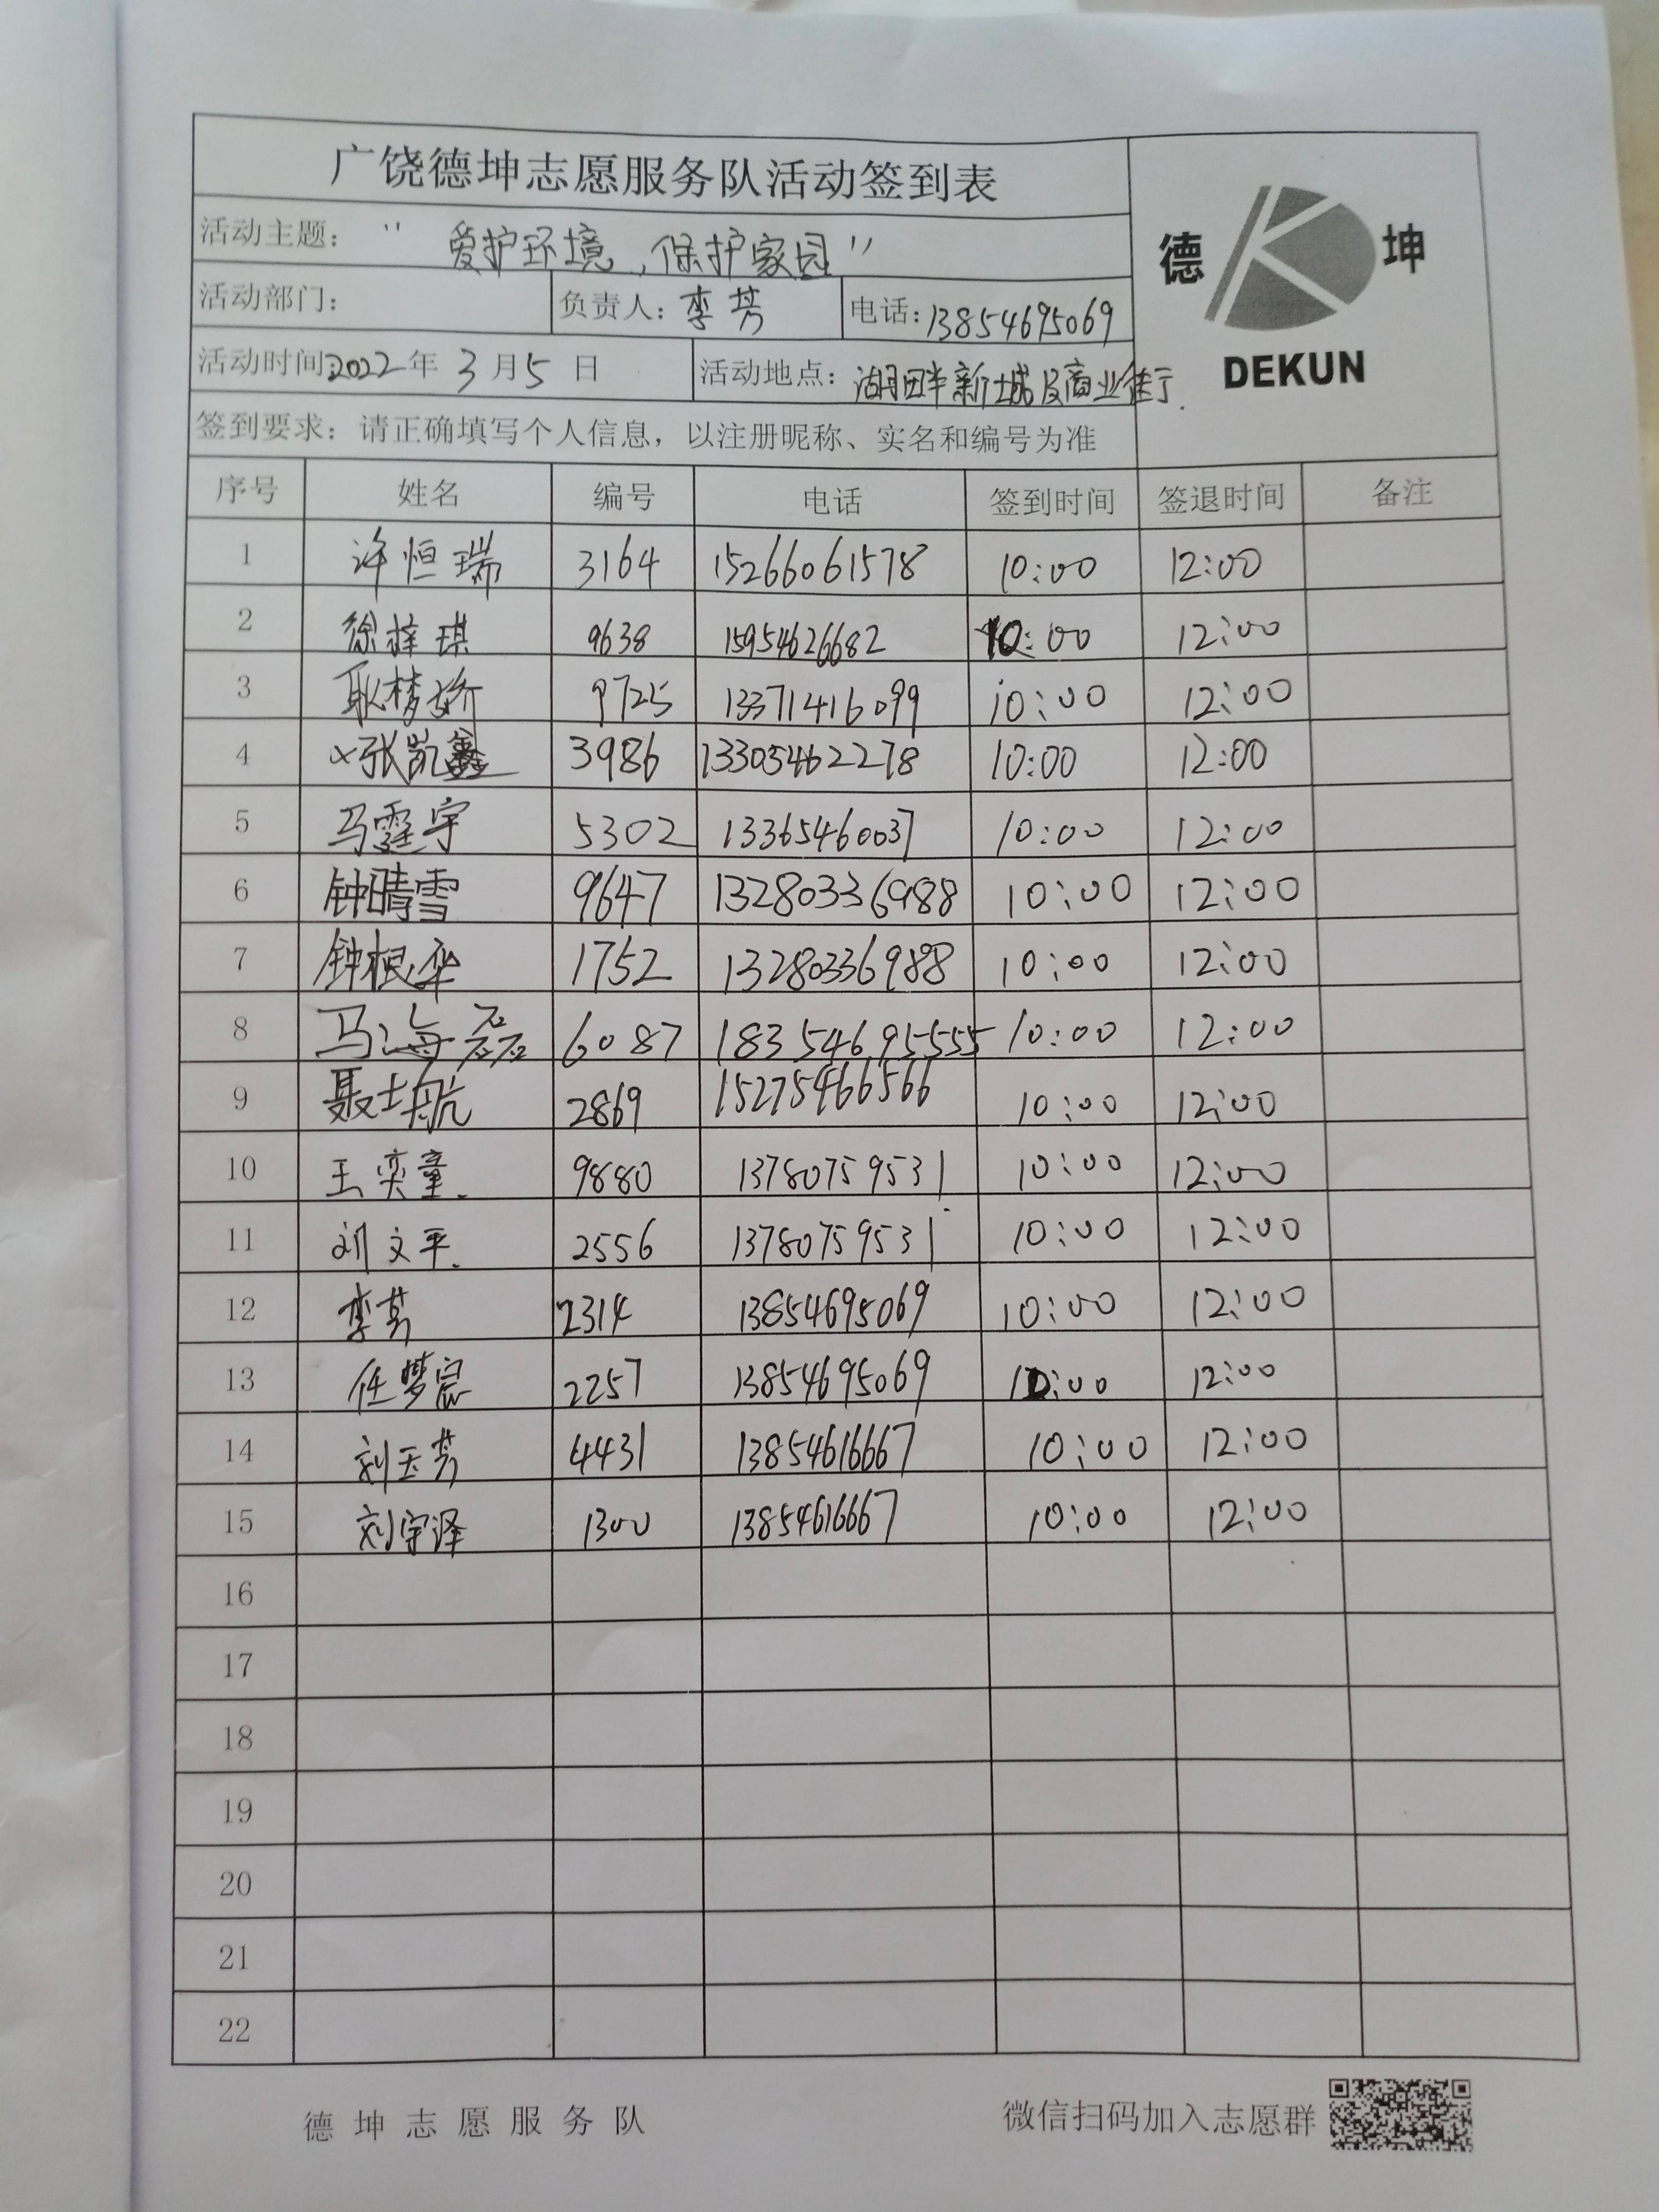 广饶德坤志愿服务队活动签到表
活动主题：“爱护环境，保护家园”
德 坤
活动部门： 负责人：李芳 电话：13854695069
DEKUN
活动时间：2022年3月5日 活动地点：湖畔新城及商业街.
签到要求：请正确填写个人信息，以注册昵称、实名和编号为准
序号 姓名 编号 电话 签到时间 签退时间 备注
1 许恒瑞 3164 15266061578 10:00 12:00
2 徐梓琪 9638 15954626682 10:00 12:00
3 耿梦娇 9725 13371416099 10:00 12:00
4 张凯鑫 3986 13305462278 10:00 12:00
5 马霆宇 5302 13365460037 10:00 12:00
6 钟晴雪 9647 13280336988 10:00 12:00
7 钟根华 1752 13280336988 10:00 12:00
8 马海磊 6087 18354695555 10:00 12:00
9 聂航 2869 15275466566 10:00 12:00
10 王奕童. 9880 13780759531 10:00 12:00
11 刘文平. 2556 13780759531 10:00 12:00
12 李芳 2314 13854695069 10:00 12:00
13 任梦宸 2257 13854695069 10:00 12:00
14 刘玉芳 4431 13854616667 10:00 12:00
15 刘宇泽 1300 13854616667 10:00 12:00
16
17
18
19
20
21
22
德坤志愿服务队 微信扫码加入志愿群